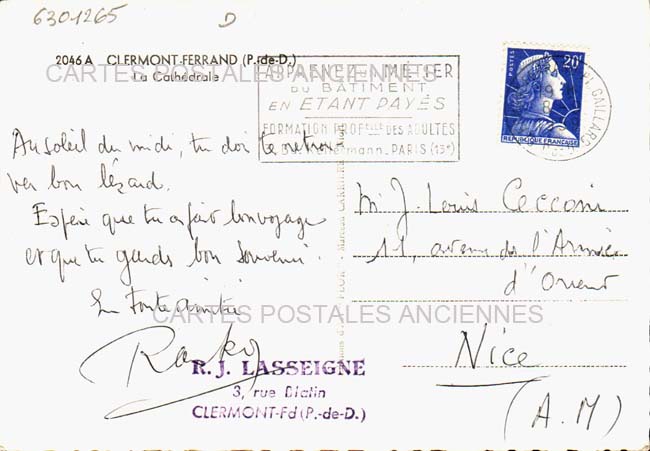 6301265 D
2046 A CLERMONT-FERRAND (P.-de-D.)
La Cathédrale
CARTES POSTALES ANCIENNES
APPRENEZ UN MÉTIER
DU BÂTIMENT
EN ETANT PAYÉS
FORMATION PROFelle DES ADULTES
Bd Kellermann - PARIS (13e)
POSTES 20F
REPUBLIQUE FRANÇAISE
GAILLARD
Au soleil du midi, tu dois te retrou-
ver bon lézard.
Espère que tu as fait bon voyage
et que tu gardes bon souvenir.
En Forte amitié
M. J. Louis Cecconi
11, avenue de l'Armée
d'Orient
Nice
(A.M)
CARTES POSTALES ANCIENNES
R. J. LASSEIGNE
3, rue Blatin
CLERMONT-Fd (P.-de-D.)